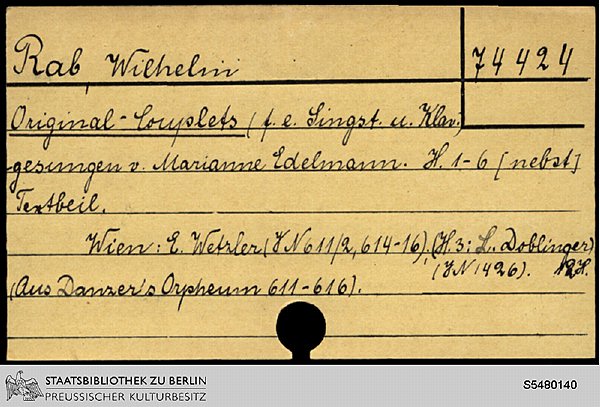 Rab, Wilhelm 74424
Original-Couplets (f. e. Singst. u. Klav.)
gesungen v. Marianne Edelmann. H. 1-6 [nebst]
Textbeil.
Wien: E. Wetzler (VN 611/2, 614-16), (H 3: L. Doblinger)
(VN 1426).
(Aus Danzer's Orpheum 611-616).
STAATSBIBLIOTHEK ZU BERLIN
PREUSSISCHER KULTURBESITZ
S5480140